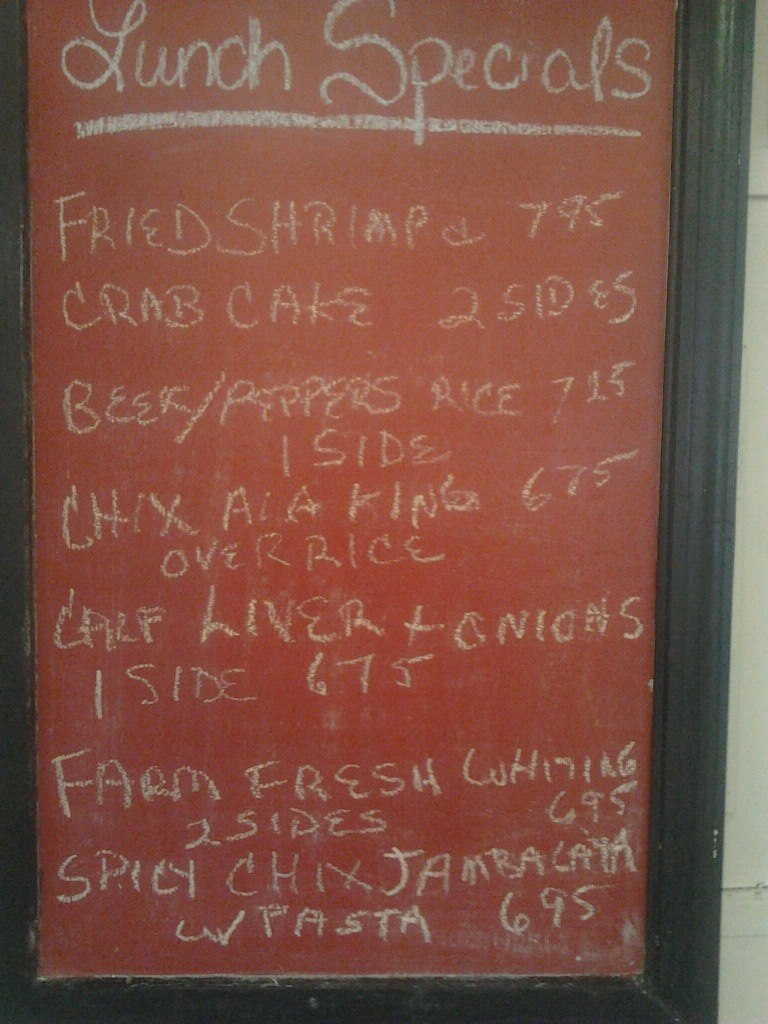 Lunch Specials
FRIED SHRIMP & 795
CRAB CAKE 2 SIDES
BEEF/PEPPERS RICE 725
1 SIDE
CHIX ALA KING 675
OVER RICE
CALF LIVER + ONIONS
1 SIDE 675
FARM FRESH WHITING
2 SIDES 695
SPICY CHIX JAMBALAYA
W/ PASTA 695